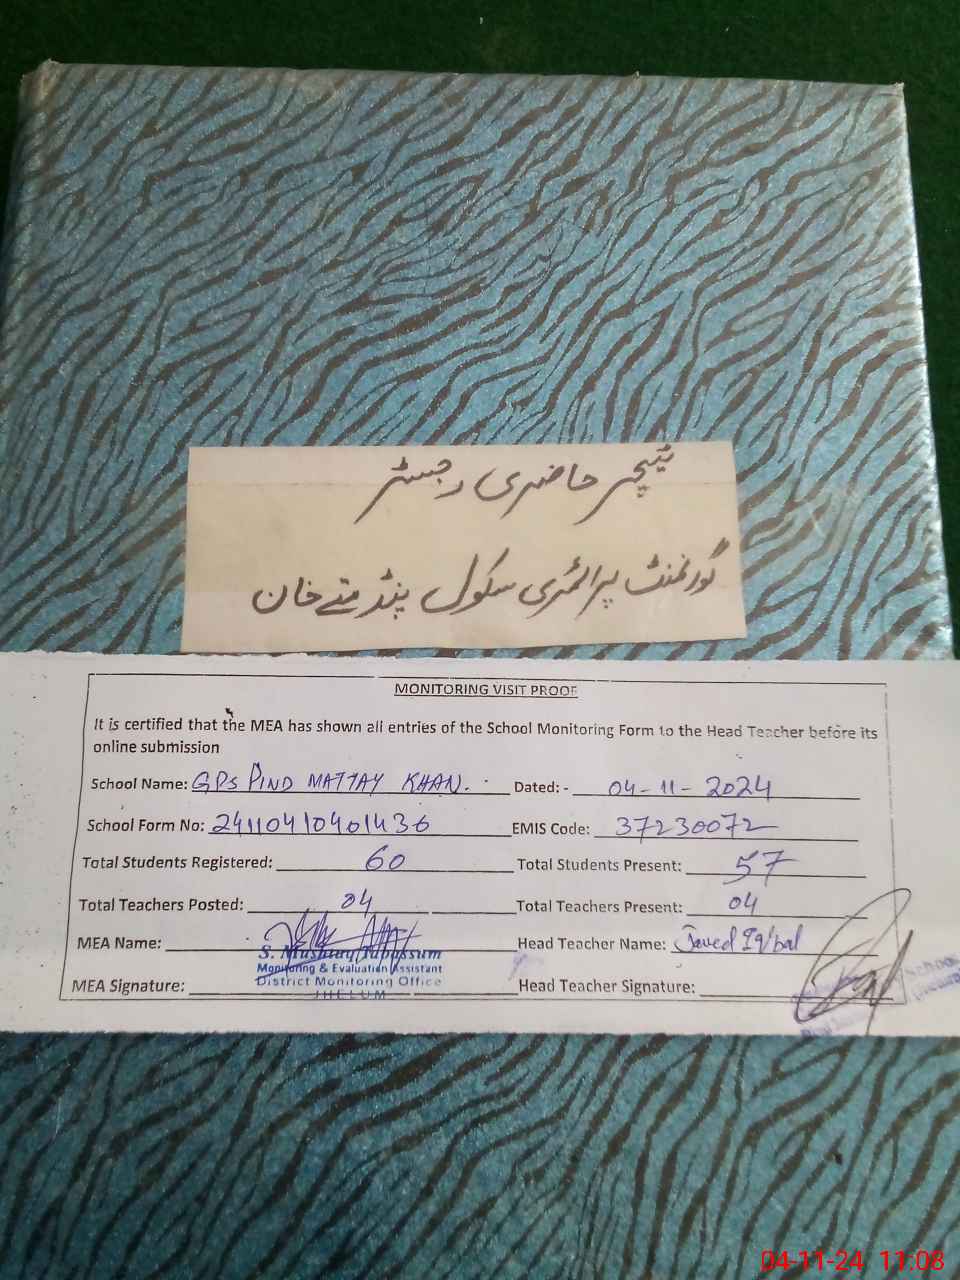 ٹیچر حاضری رجسٹر
گورنمنٹ پرائمری سکول پنڈ متے خان
MONITORING VISIT PROOF
It is certified that the MEA has shown all entries of the School Monitoring Form to the Head Teacher before its
online submission
School Name: GPS PIND MATTAY KHAN. Dated: - 04-11-2024
School Form No: 24110410401436 EMIS Code: 37230072
Total Students Registered: 60 Total Students Present: 57
Total Teachers Posted: 04 Total Teachers Present: 04
MEA Name: Head Teacher Name: Javed Iqbal
S. Mushtaq Tabassum
Monitoring & Evaluation Assistant
District Monitoring Office
JHELUM
MEA Signature: Head Teacher Signature:
School
04-11-24 11:08